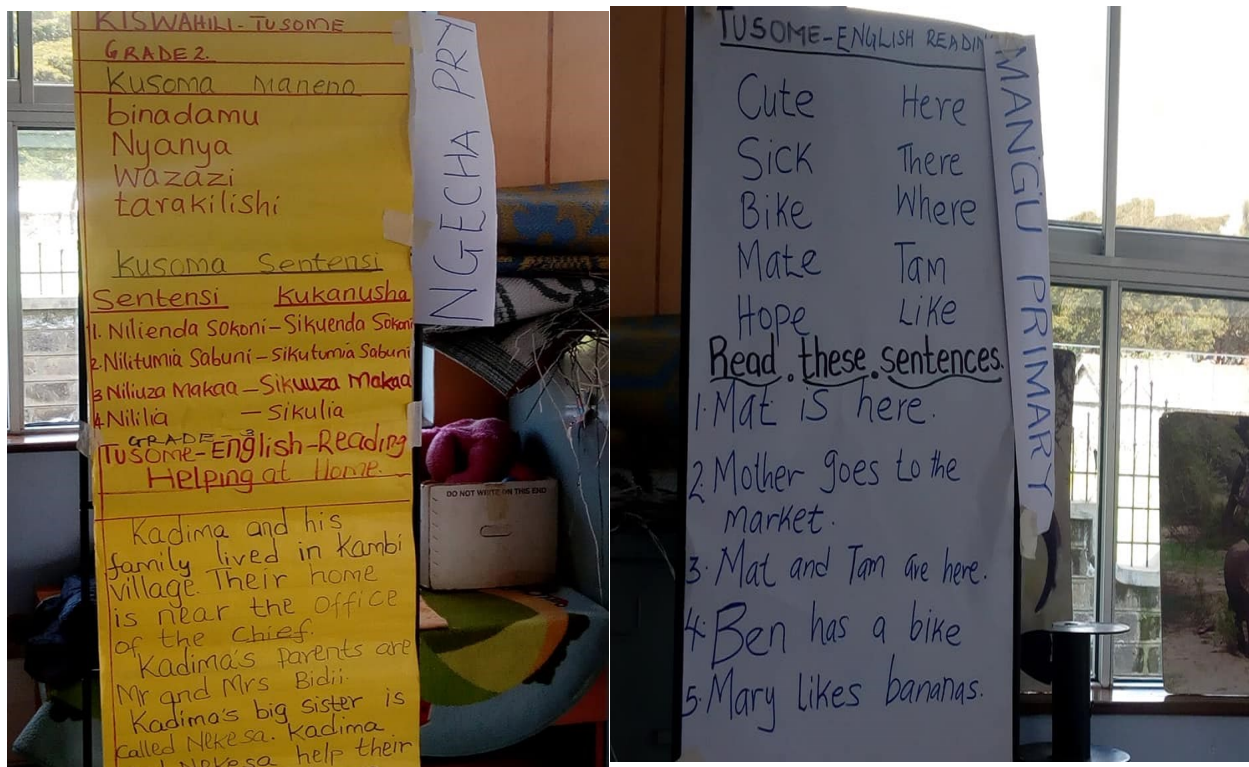 KISWAHILI-TUSOME
GRADE 2.
Kusoma Maneno
binadamu
Nyanya
Wazazi
tarakilishi
Kusoma Sentensi
Sentensi Kukanusha
1. Nilienda Sokoni - Sikuenda Sokoni
2. Nilitumia Sabuni - Sikutumia Sabuni
3 Niliuza Makaa - Sikuuza Makaa
4 Nililia - Sikulia
GRADE - 3
TUSOME-English-Reading
Helping at Home.
Kadima and his
family lived in Kambi
village. Their home
is near the office
of the Chief.
Kadima's Parents are
Mr and Mrs Bidii.
Kadima's big sister is
called Nekesa. Kadima
Nekesa help their
NGECHA PRY
DO NOT WRITE ON THIS END
TUSOME-ENGLISH READIN
Cute Here
Sick There
Bike Where
Mate Tam
Hope Like
Read these sentences.
1. Mat is here.
2. Mother goes to the
market.
3. Mat and Tam are here.
4. Ben has a bike
5. Mary likes bananas.
MANGU PRIMARY